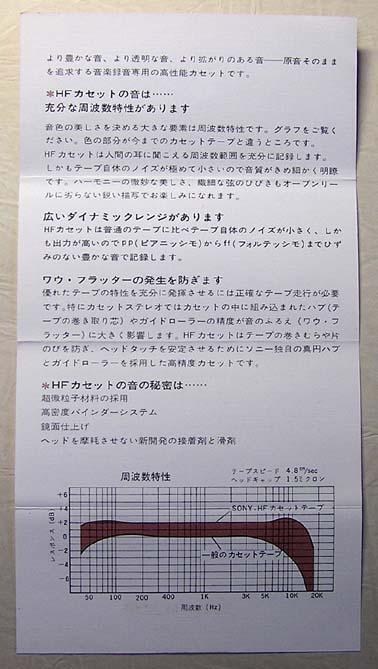 より豊かな音、より透明な音、より拡がりのある音──原音そのまま
を追求する音楽録音専用の高性能カセットです。
＊HFカセットの音は……
充分な周波数特性があります
音色の美しさを決める大きな要素は周波数特性です。グラフをご覧く
ださい。色の部分が今までのカセットテープと違うところです。
HFカセットは人間の耳に聞こえる周波数範囲を充分に記録します。
しかもテープ自体のノイズが極めて小さいので音質がきめ細かく明瞭
です。ハーモニーの微妙な美しさ、繊細な弦のひびきもオープンリー
ルに劣らない鋭い描写でお楽しみになれます。
広いダイナミックレンジがあります
HFカセットは普通のテープに比べテープ自体のノイズが小さく、しか
も出力が高いのでpp(ピアニッシモ)からff(フォルテッシモ)までひず
みのない豊かな音で記録します。
ワウ・フラッターの発生を防ぎます
優れたテープの特性を充分に発揮させるには正確なテープ走行が必要
です。特にカセットステレオではカセットの中に組み込まれたハブ(テ
ープの巻き取り芯)やガイドローラーの精度が音のふるえ(ワウ・フ
ラッター)に大きく影響します。HFカセットはテープの巻きむらや片
のびを防ぎ、ヘッドタッチを安定させるためにソニー独自の真円ハブ
とガイドローラーを採用した高精度カセットです。
＊HFカセットの音の秘密は……
超微粒子材料の採用
高密度バインダーシステム
鏡面仕上げ
ヘッドを摩耗させない新開発の接着剤と滑剤
周波数特性
テープスピード 4.8cm/sec
ヘッドギャップ 1.5ミクロン
レスポンス (dB)
+6
+4
+2
0
-2
-4
-6
SONY-HFカセットテープ
一般のカセットテープ
50 100 200 400 1K 3K 5K 10K 20K
周波数 (Hz)